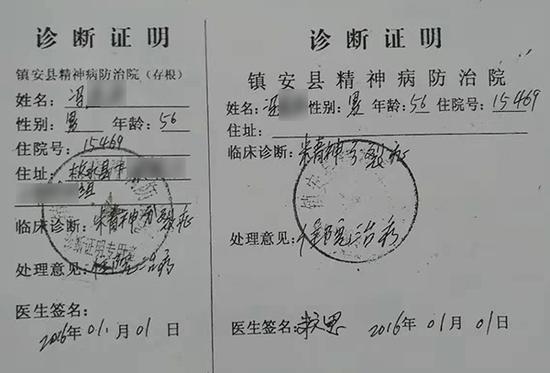 诊断证明
镇安县精神病防治院（存根）
姓名：冯
性别：男 年龄：56
住院号：15469
住址：柞水县
组
临床诊断：精神分裂症
诊断证明专用章
处理意见：住院治疗
医生签名：
2016年01月01日
诊断证明
镇安县精神病防治院
姓名：冯 性别：男 年龄：56 住院号：15469
住址：
临床诊断：精神分裂症
处理意见：住院治疗
医生签名： 2016年01月01日